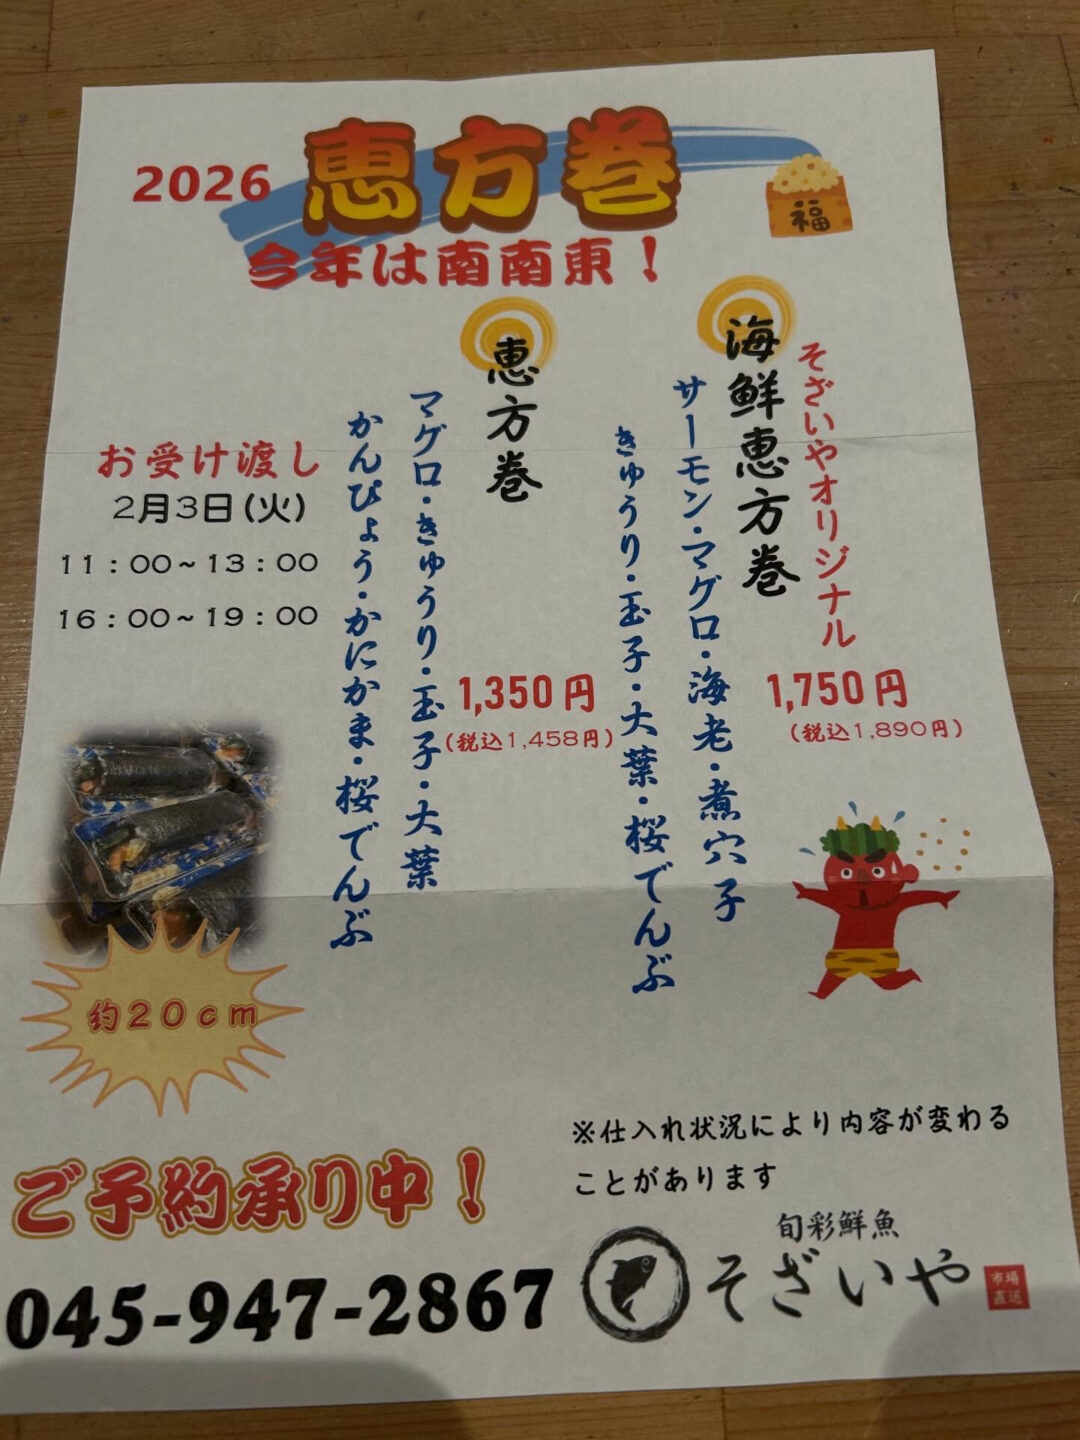 2026
恵方巻
福
今年は南南東！
そざいやオリジナル
海鮮恵方巻
サーモン・マグロ・海老・煮穴子
きゅうり・玉子・大葉・桜でんぶ
1,750円
(税込1,890円)
恵方巻
マグロ・きゅうり・玉子・大葉
かんぴょう・かにかま・桜でんぶ
1,350円
(税込1,458円)
お受け渡し
2月3日(火)
11：00~13：00
16：00~19：00
約20cm
※仕入れ状況により内容が変わる
ことがあります
ご予約承り中！
045-947-2867
旬彩鮮魚
そざいや
市場
直送